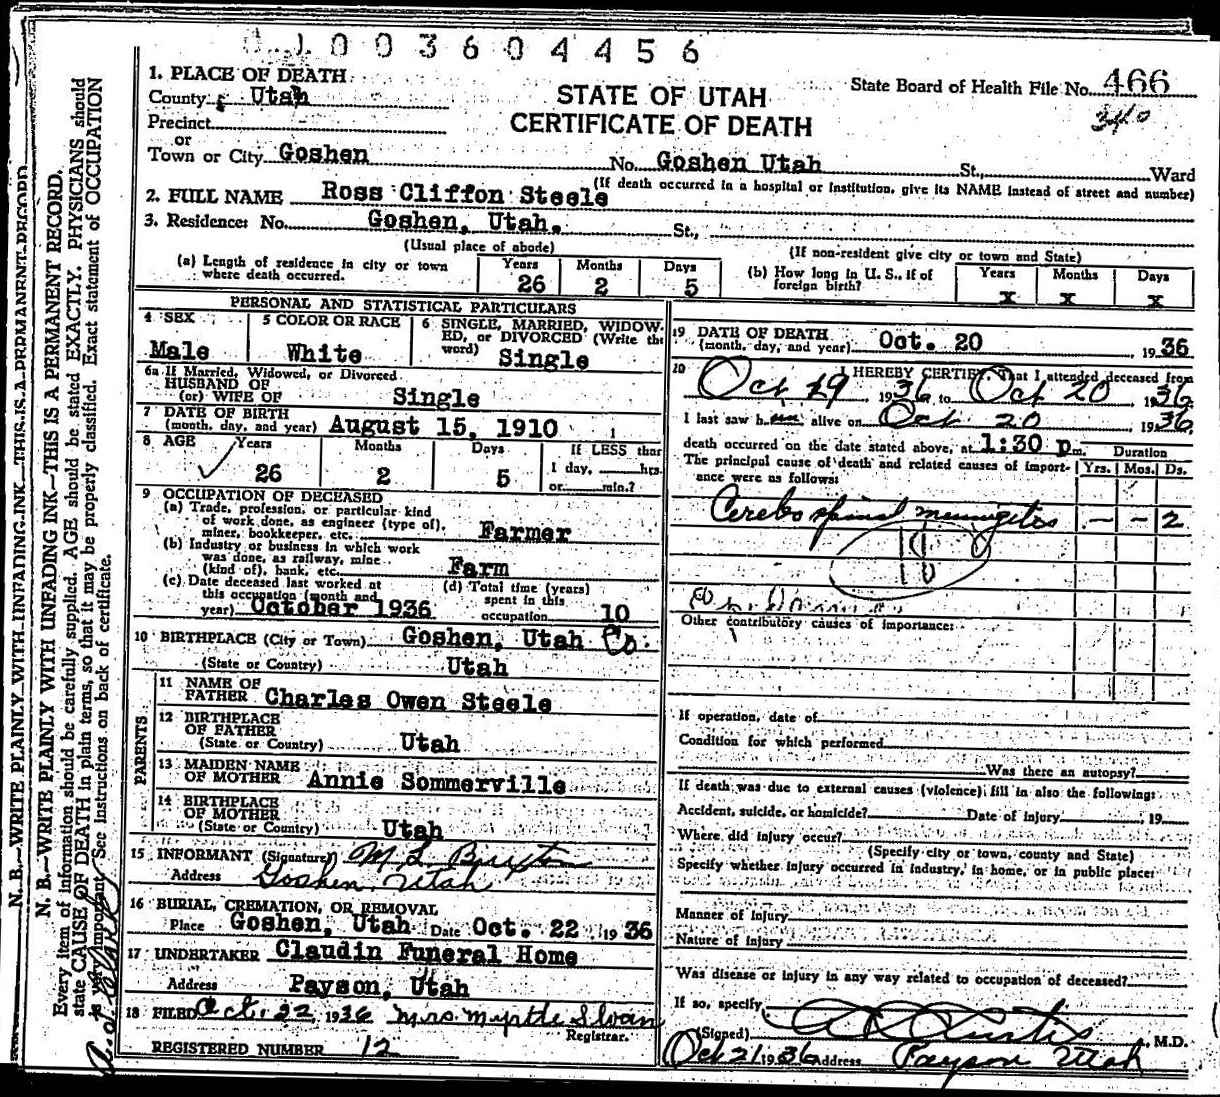 003604456
1. PLACE OF DEATH
County Utah
STATE OF UTAH
State Board of Health File No. 466
340
Precinct
CERTIFICATE OF DEATH
or
Town or City Goshen No. Goshen Utah St., Ward
(If death occurred in a hospital or institution, give its NAME instead of street and number)
2. FULL NAME Ross Cliffon Steele
3. Residence: No. Goshen, Utah. St.,
(Usual place of abode) (If non-resident give city or town and State)
(a) Length of residence in city or town where death occurred. Years 26 Months 2 Days 5
(b) How long in U. S., if of foreign birth? Years x Months x Days x
PERSONAL AND STATISTICAL PARTICULARS
4 SEX Male
5 COLOR OR RACE White
6 SINGLE, MARRIED, WIDOWED, or DIVORCED (Write the word) Single
6a If Married, Widowed, or Divorced
HUSBAND OF
(or) WIFE OF Single
7 DATE OF BIRTH
(month, day, and year) August 15, 1910
8 AGE Years 26 Months 2 Days 5 If LESS than 1 day, hrs. or min.?
9 OCCUPATION OF DECEASED
(a) Trade, profession, or particular kind
of work done, as engineer (type of),
miner, bookkeeper, etc. Farmer
(b) Industry or business in which work
was done, as railway, mine
(kind of), bank, etc. Farm
(c) Date deceased last worked at
this occupation (month and
year) October 1936
(d) Total time (years)
spent in this
occupation 10
10 BIRTHPLACE (City or Town) Goshen, Utah Co.
(State or Country) Utah
PARENTS
11 NAME OF
FATHER Charles Owen Steele
12 BIRTHPLACE
OF FATHER
(State or Country) Utah
13 MAIDEN NAME
OF MOTHER Annie Sommerville
14 BIRTHPLACE
OF MOTHER
(State or Country) Utah
15 INFORMANT (Signature) M. L.
Address Goshen, Utah
16 BURIAL, CREMATION, OR REMOVAL
Place Goshen, Utah Date Oct. 22 1936
17 UNDERTAKER Claudin Funeral Home
Address Payson, Utah
18 FILED Oct. 22 1936 Mrs. Myrtle Sloan
Registrar.
REGISTERED NUMBER 12
19 DATE OF DEATH
(month, day, and year) Oct. 20, 1936
20 I HEREBY CERTIFY, That I attended deceased from
Oct 19, 1936, to Oct 20, 1936
I last saw him alive on Oct 20 1936
death occurred on the date stated above, at 1:30 p.m.
Duration
The principal cause of death and related causes of importance were as follows:
Yrs. Mos. Ds.
Cerebo spinal meningitis - - 2
Other contributory causes of importance:
If operation, date of
Condition for which performed
Was there an autopsy?
If death was due to external causes (violence) fill in also the following:
Accident, suicide, or homicide? Date of injury, 19
Where did injury occur?
(Specify city or town, county and State)
Specify whether injury occurred in industry, in home, or in public place:
Manner of Injury
Nature of Injury
Was disease or injury in any way related to occupation of deceased?
If so, specify
(Signed) Curtis, M.D.
Oct 21 1936 Address Payson Utah
N. B.—WRITE PLAINLY WITH UNFADING INK—THIS IS A PERMANENT RECORD
N. B.—WRITE PLAINLY WITH UNFADING INK—THIS IS A PERMANENT RECORD.
Every item of information should be carefully supplied. AGE should be stated EXACTLY. PHYSICIANS should
state CAUSE OF DEATH in plain terms, so that it may be properly classified. Exact statement of OCCUPATION
is very important. See instructions on back of certificate.